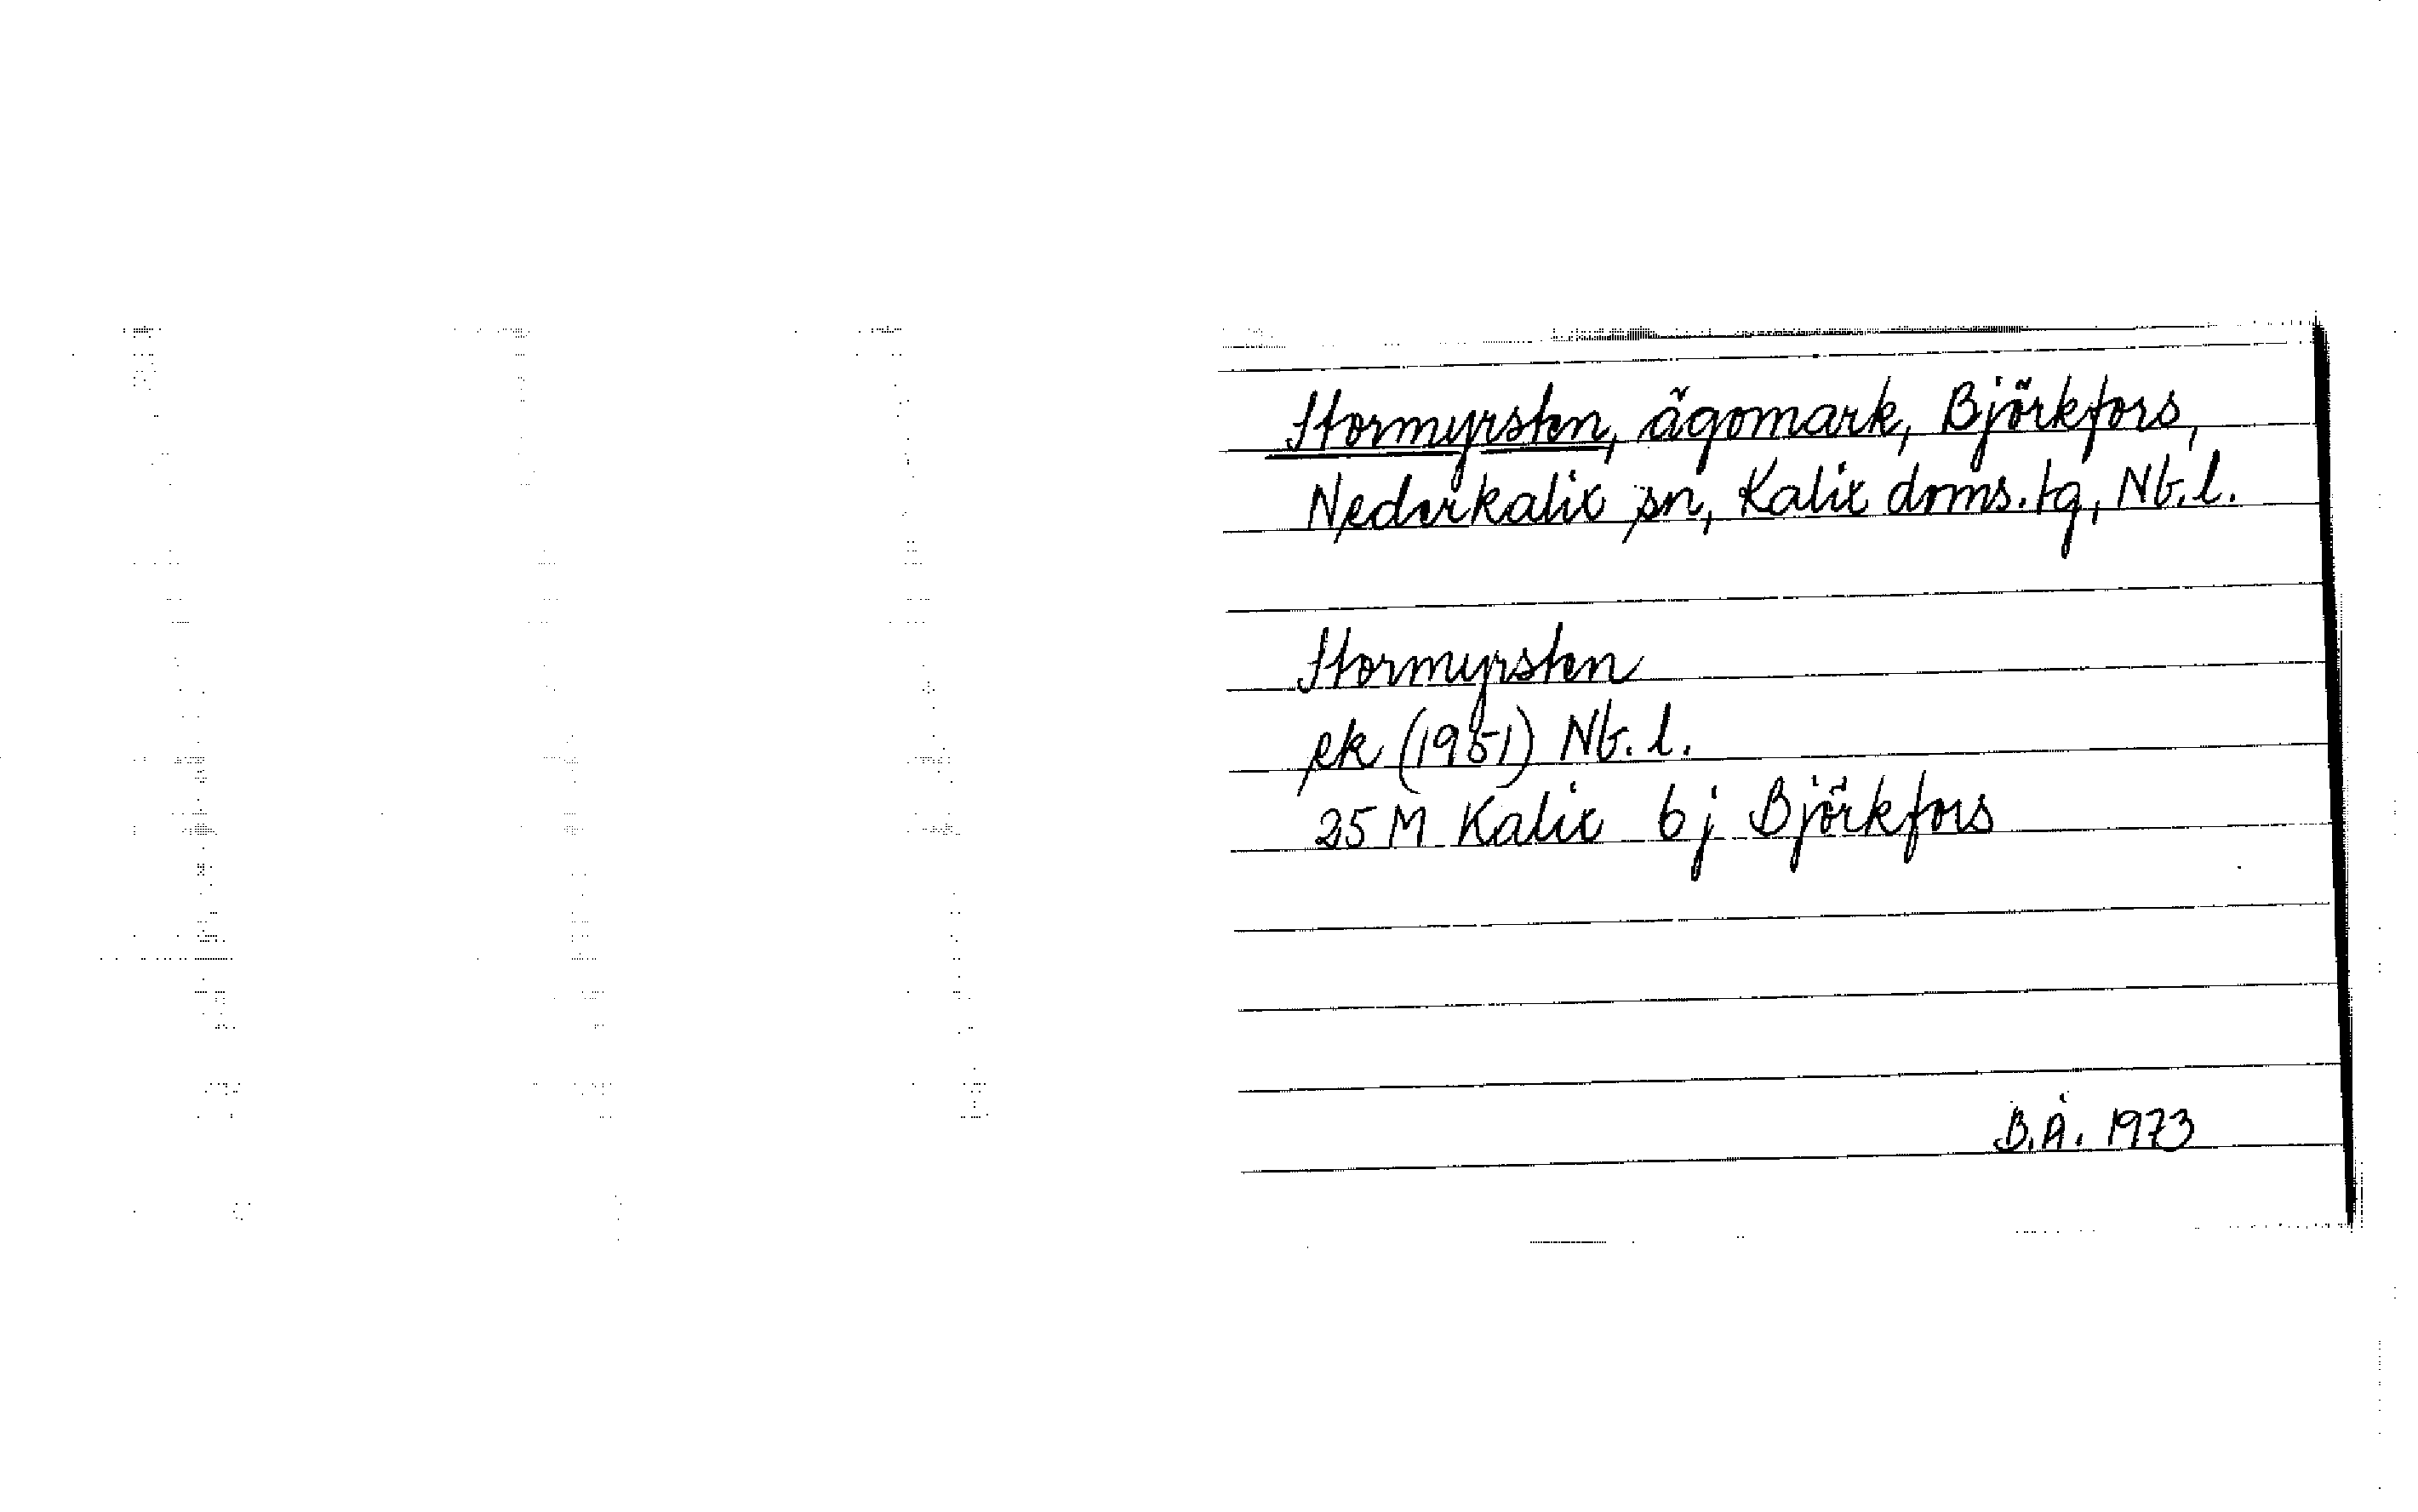 Stormyrsten, ägomark, Björkfors,
Nederkalix sn, Kalix doms.tg, Nb.l.
Stormyrsten
ek (1951) Nb.l.
25 M Kalix 6j Björkfors
B.Å. 1973